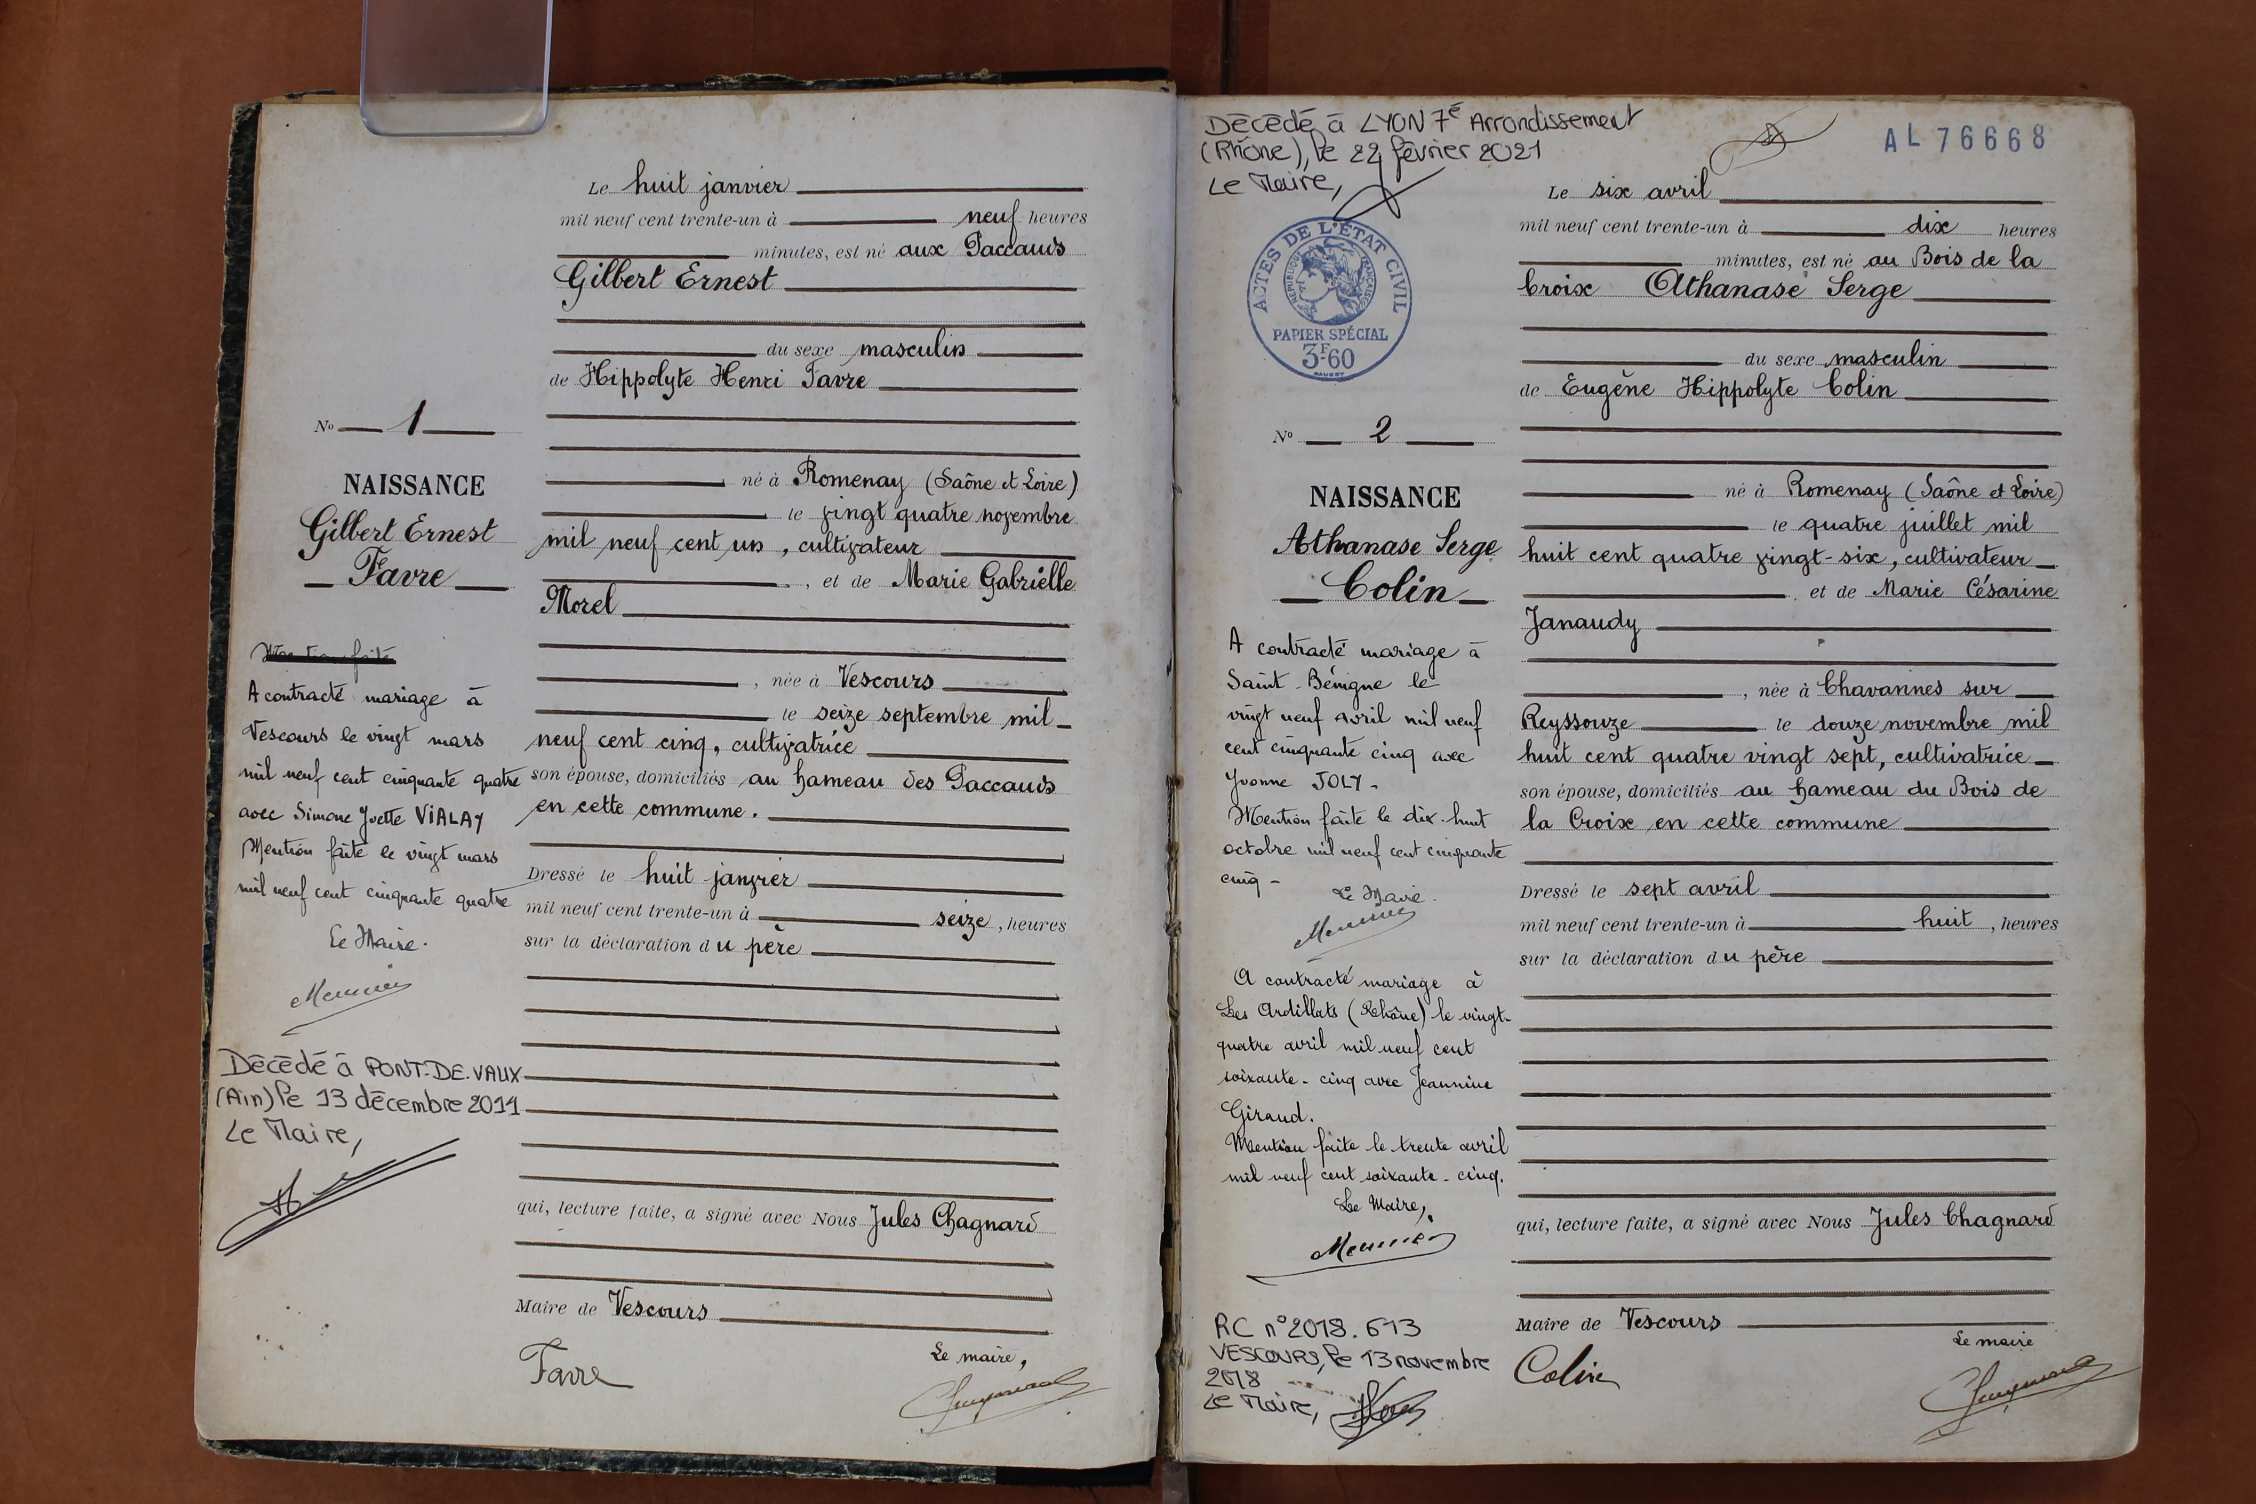 Le huit janvier
mil neuf cent trente-un à neuf heures
minutes, est né aux Paccauds
Gilbert Ernest
du sexe masculin
de Hippolyte Henri Favre
né à Romenay (Saône et Loire)
le vingt quatre novembre
mil neuf cent un, cultivateur
, et de Marie Gabrielle
Morel
, née à Vescours
le seize septembre mil
neuf cent cinq, cultivatrice
son épouse, domiciliés au hameau des Paccauds
en cette commune.
Dressé le huit janvier
mil neuf cent trente-un à seize, heures
sur la déclaration du père
qui, lecture faite, a signé avec Nous Jules Chagnard
Maire de Vescours
Le maire,
Favre
No 1
NAISSANCE
Gilbert Ernest
Favre
Mention faite
A contracté mariage à
Vescours le vingt mars
mil neuf cent cinquante quatre
avec Simone Yvette VIALAY
Mention faite le vingt mars
mil neuf cent cinquante quatre
Le Maire.
Meunier
Décédé à PONT-DE-VAUX
(Ain) le 13 décembre 2014
Le Maire,
Décédé à LYON 7é Arrondissement
(Rhône), le 22 février 2021
Le Maire,
AL 76668
ACTES DE L'ÉTAT CIVIL
RÉPUBLIQUE FRANÇAISE
PAPIER SPÉCIAL
3F60
No 2
NAISSANCE
Athanase Serge
Colin
A contracté mariage à
Saint-Bénigne le
vingt neuf avril mil neuf
cent cinquante cinq avec
Yvonne JOLY-
Mention faite le dix-huit
octobre mil neuf cent cinquante
cinq-
Le Maire.
Meunier
A contracté mariage à
Les Ardillats (Rhône) le vingt-
quatre avril mil neuf cent
soixante-cinq avec Jeannine
Giraud.
Mention faite le trente avril
mil neuf cent soixante-cinq.
Le Maire,
Meunier
RC n°2018.613
VESCOURS, le 13 novembre
2018
Le Maire,
Le six avril
mil neuf cent trente-un à dix heures
minutes, est né au Bois de la
Croix Athanase Serge
du sexe masculin
de Eugène Hippolyte Colin
né à Romenay (Saône et Loire)
le quatre juillet mil
huit cent quatre vingt-six, cultivateur
, et de Marie Césarine
Janaudy
, née à Chavannes sur
Reyssouze le douze novembre mil
huit cent quatre vingt sept, cultivatrice
son épouse, domiciliés au hameau du Bois de
la Croix en cette commune
Dressé le sept avril
mil neuf cent trente-un à huit, heures
sur la déclaration du père
qui, lecture faite, a signé avec Nous Jules Chagnard
Maire de Vescours
Le maire
Colin